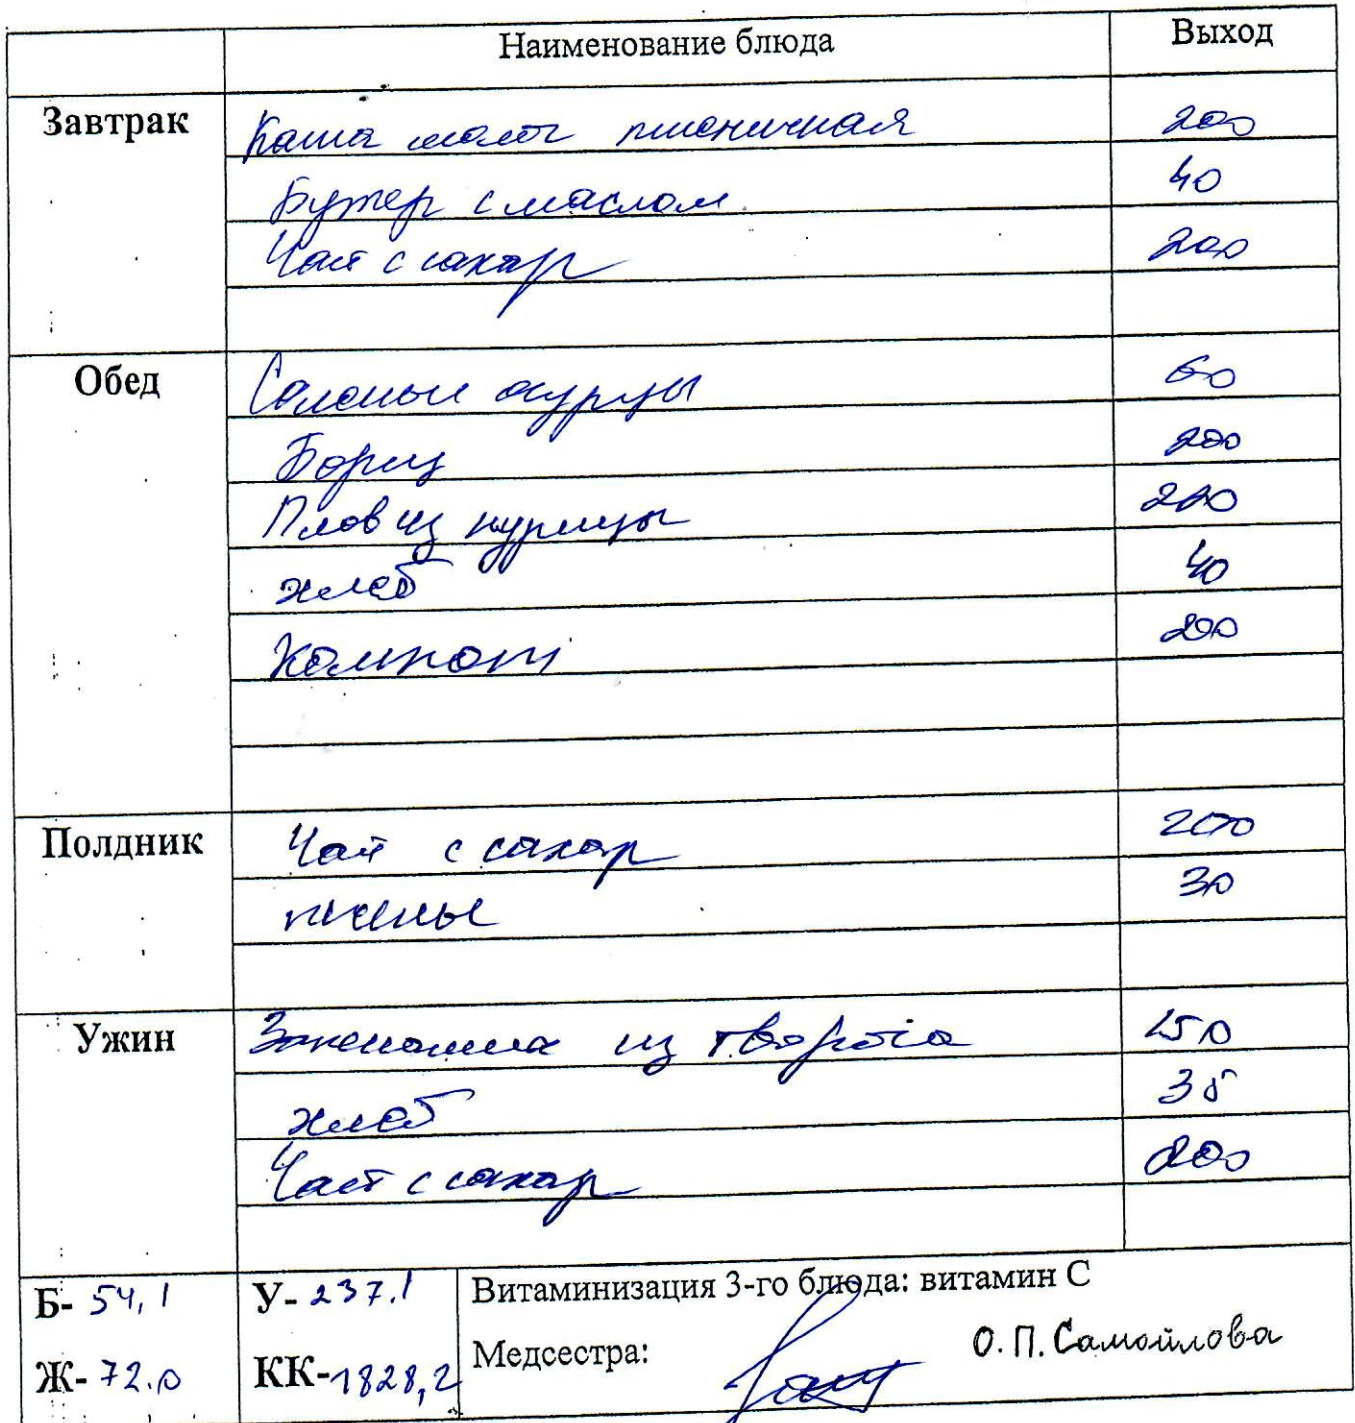 Наименование блюда Выход
Завтрак Каша молоч пшеничная 200
Бутер с маслом 40
Чай с сахар 200
Обед Соленые огурцы 60
Борщ 200
Плов из курицы 200
хлеб 40
Компот 200
Полдник Чай с сахар 200
30
Ужин Запеканка из творога 150
хлеб 35
Чай с сахар 200
Б- 54,1 У- 237.1 Витаминизация 3-го блюда: витамин С
Ж- 72.0 КК- 1828,2 Медсестра: О.П. Самойлова